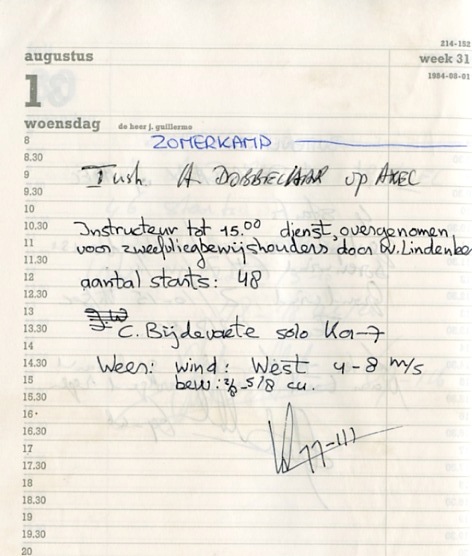 214-152
augustus
week 31
1
1984-08-01
woensdag de heer j. guillermo
8 ZOMERKAMP
8.30
9 op AXEL
9.30
10
10.30 Instructeur tot 15.00 dienst, overgenomen
11 voor zweefvliegbewijshouders door
11.30
12 aantal starts: 48
12.30
13
13.30 C. Bijdevaete solo Ka-7
14
14.30 Weer: wind: West 4-8 m/s
15 bew: 5/8 cu.
15.30
16
16.30
17
17.30
18
18.30
19
19.30
20